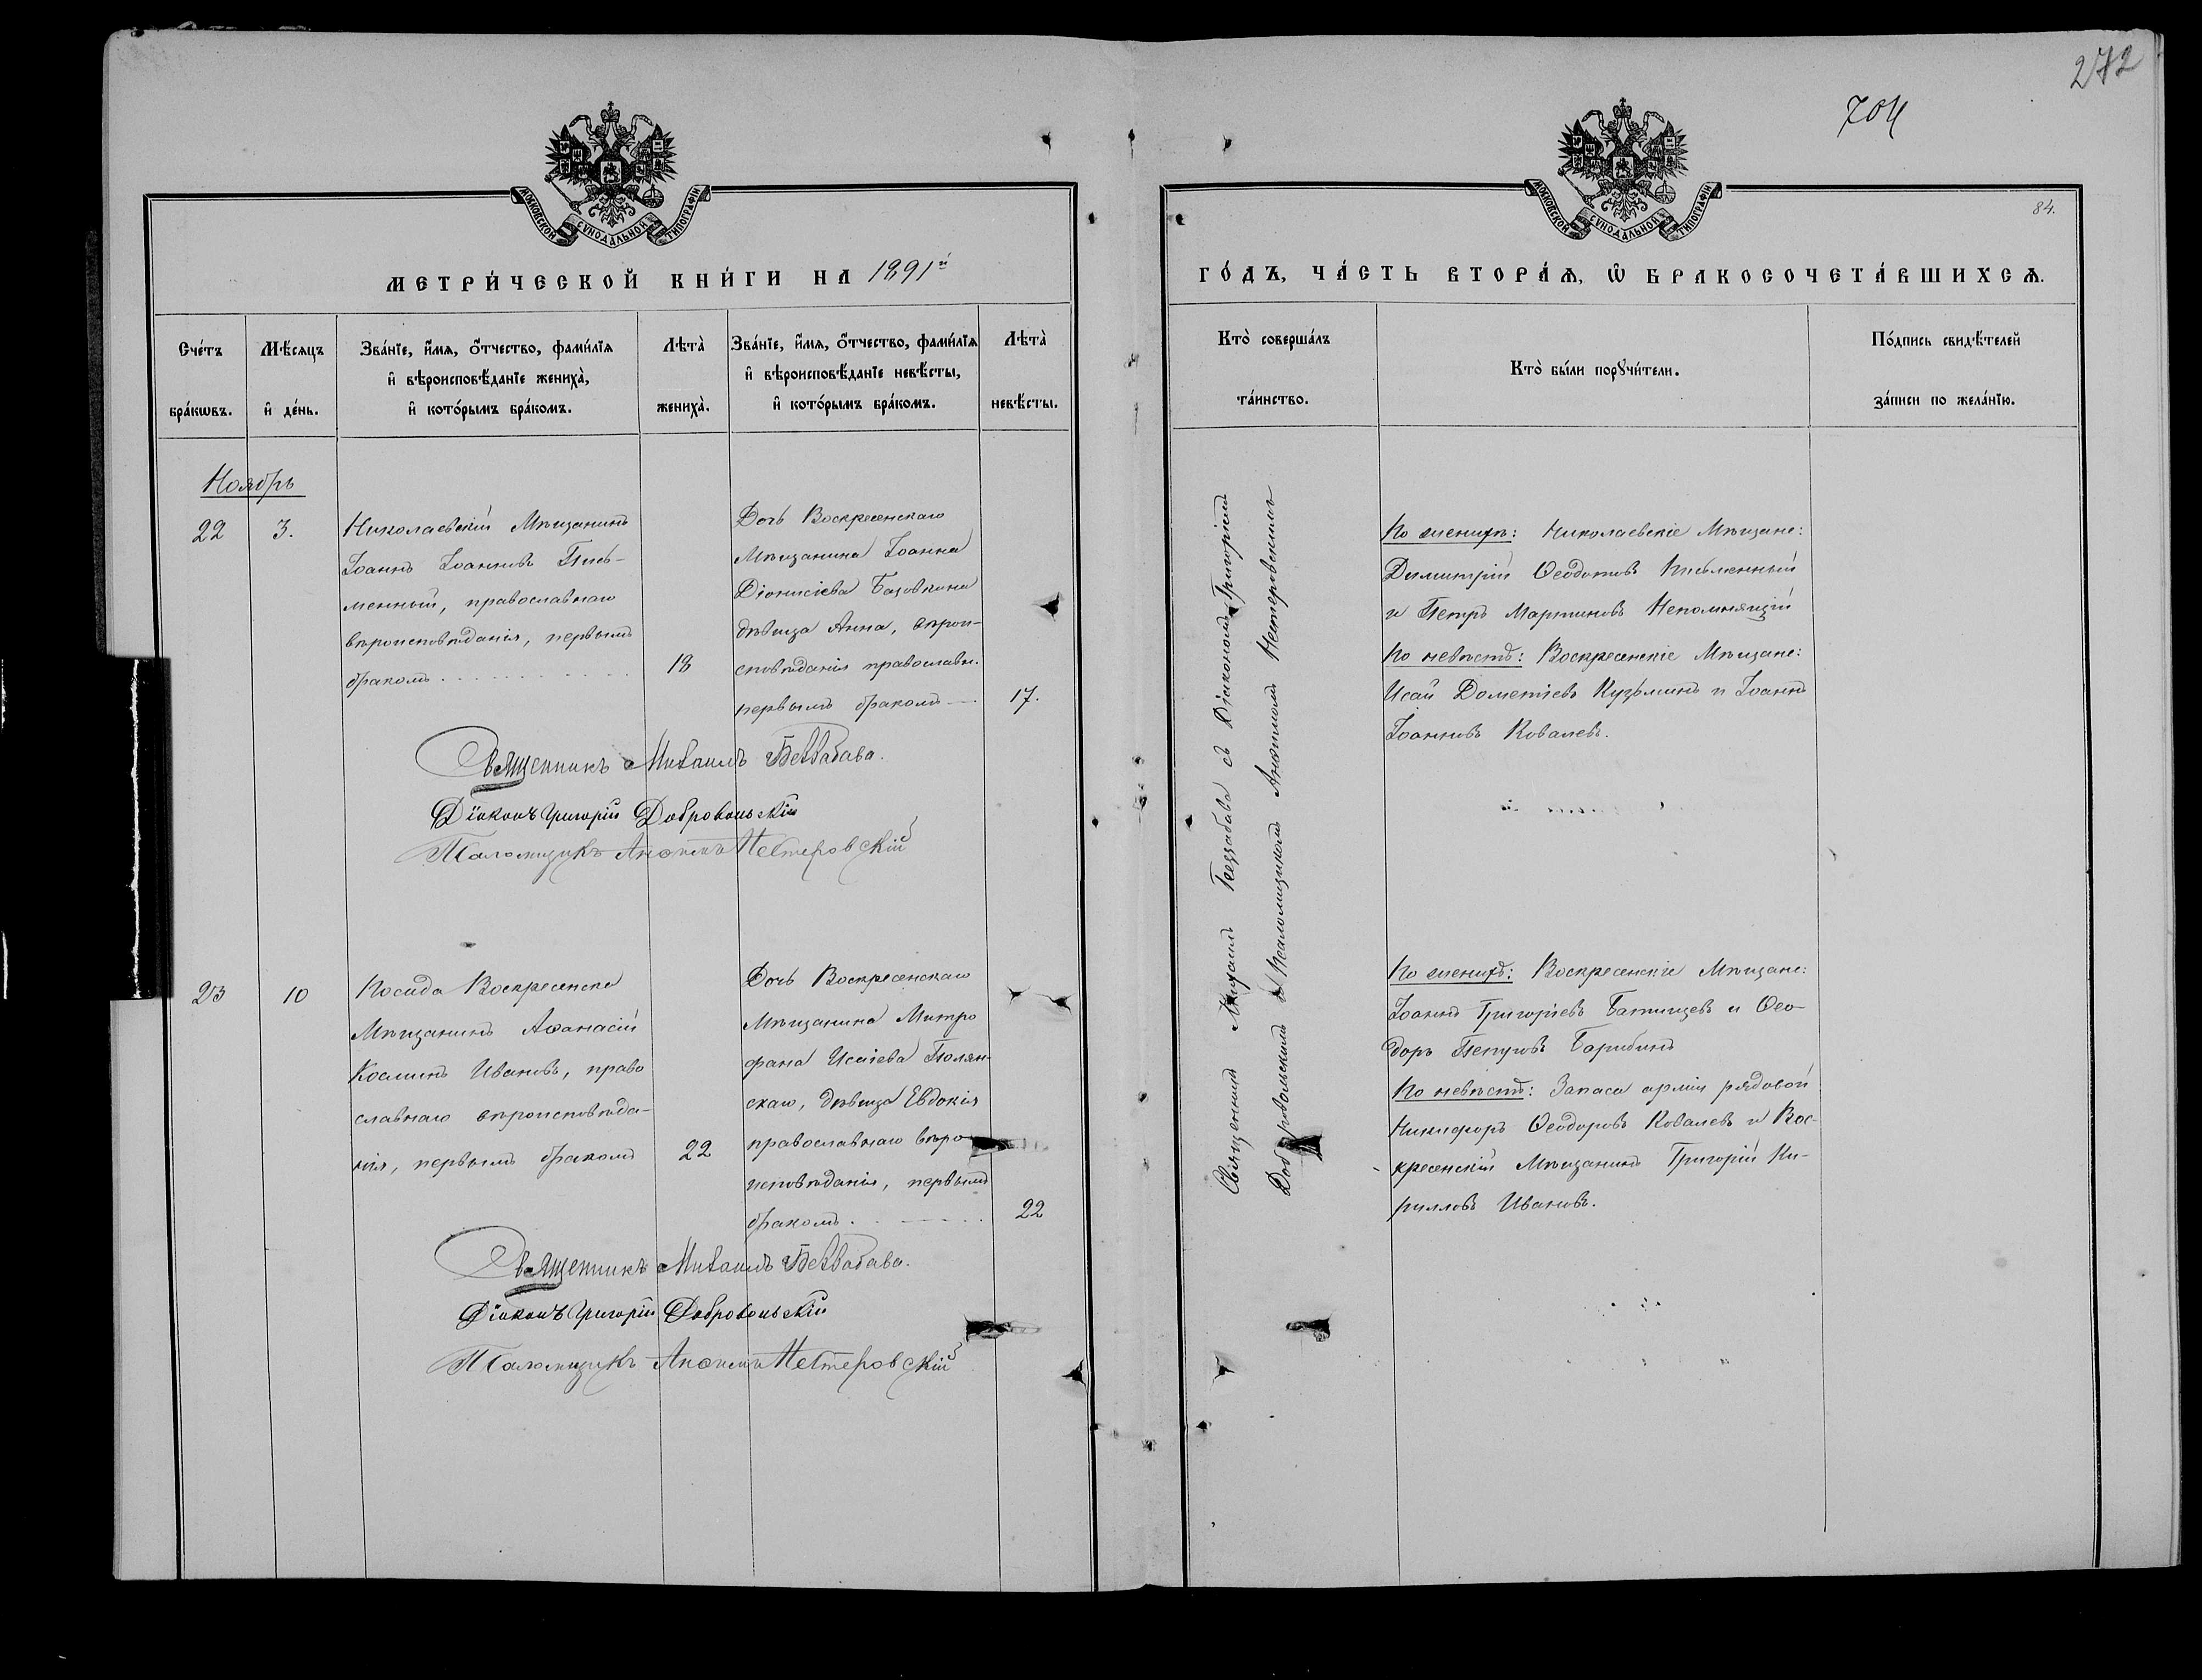 272
704
МОСКОВСКОЙ СѴНОДАЛЬНОЙ ТИПОГРАФІИ
МЕТРИ́ЧЕСКОЙ КНИ́ГИ НА 1891й
Сче́тъ бра́кѡвъ.
Мѣ́сяцъ и҆ де́нь.
Зва́нїе, и҆́мѧ, ѻ҆́тчество, фами́лїѧ
и҆ вѣроисповѣ́данїе жениха̀,
и҆ кото́рымъ бра́комъ.
Лѣта̀ жениха̀.
Зва́нїе, и҆́мѧ, ѻ҆́тчество, фами́лїѧ
и҆ вѣроисповѣ́данїе невѣ́сты,
и҆ кото́рымъ бра́комъ.
Лѣта̀ невѣ́сты.
Ноябрь
22
3.
Николаевскій Мѣщанинъ
Іоаннъ Іоанновъ Пись-
менный, православнаго
вѣроисповѣданія, первымъ
бракомъ
18
Дочь Воскресенскаго
Мѣщанина Іоанна
Діонисіева
дѣвица Анна, вѣрои-
сповѣданія православн.
первымъ бракомъ
17.
Священникъ Михаилъ Беззабава.
Діаконъ Григорій Добровольскій
Псаломщикъ Анѳимъ Нестеровскій
23
10
Посада Воскресенска
Мѣщанинъ Аѳанасій
Косминъ Ивановъ, право
славнаго вѣроисповѣда-
нія, первымъ бракомъ
22
Дочь Воскресенскаго
Мѣщанина Митро
фана Исаіева Полян-
скаго, дѣвица Евдокія
православнаго вѣро
исповѣданія, первымъ
бракомъ.
22
Священникъ Михаилъ Беззабава.
Діаконъ Григорій Добровольскій
Псаломщикъ Анѳимъ Нестеровскій
МОСКОВСКОЙ СѴНОДАЛЬНОЙ ТИПОГРАФІИ
84.
ГО́ДЪ, ЧА́СТЬ ВТОРА́Ѧ, Ѡ҆ БРАКОСОЧЕТА́ВШИХСѦ.
Кто̀ соверша́лъ
та́инство.
Кто̀ бы́ли порꙋчи́тели.
По́дпись свидѣ́телей
за́писи по жела́нїю.
Священникъ Михаилъ Беззабава съ Діакономъ Григоріемъ
Добровольскимъ и Псаломщикомъ Анѳимомъ Нестеровскимъ
По женихѣ: Николаевскіе Мѣщане:
Димитрій Ѳеодотовъ Письменный
и Петръ Мартиновъ Непомнящій
По невѣстѣ: Воскресенскіе Мѣщане:
Исай Дометіевъ Кузьминъ и Іоаннъ
Іоанновъ Ковалевъ.
По женихѣ: Воскресенскіе Мѣщане:
Іоаннъ Григоріевъ Батищевъ и Ѳео-
доръ Петровъ Барыбинъ
По невѣстѣ: Запаса арміи рядовой
Никифоръ Ѳеодоровъ Ковалевъ и Вос-
кресенскій Мѣщанинъ Григорій Ки-
рилловъ Ивановъ.